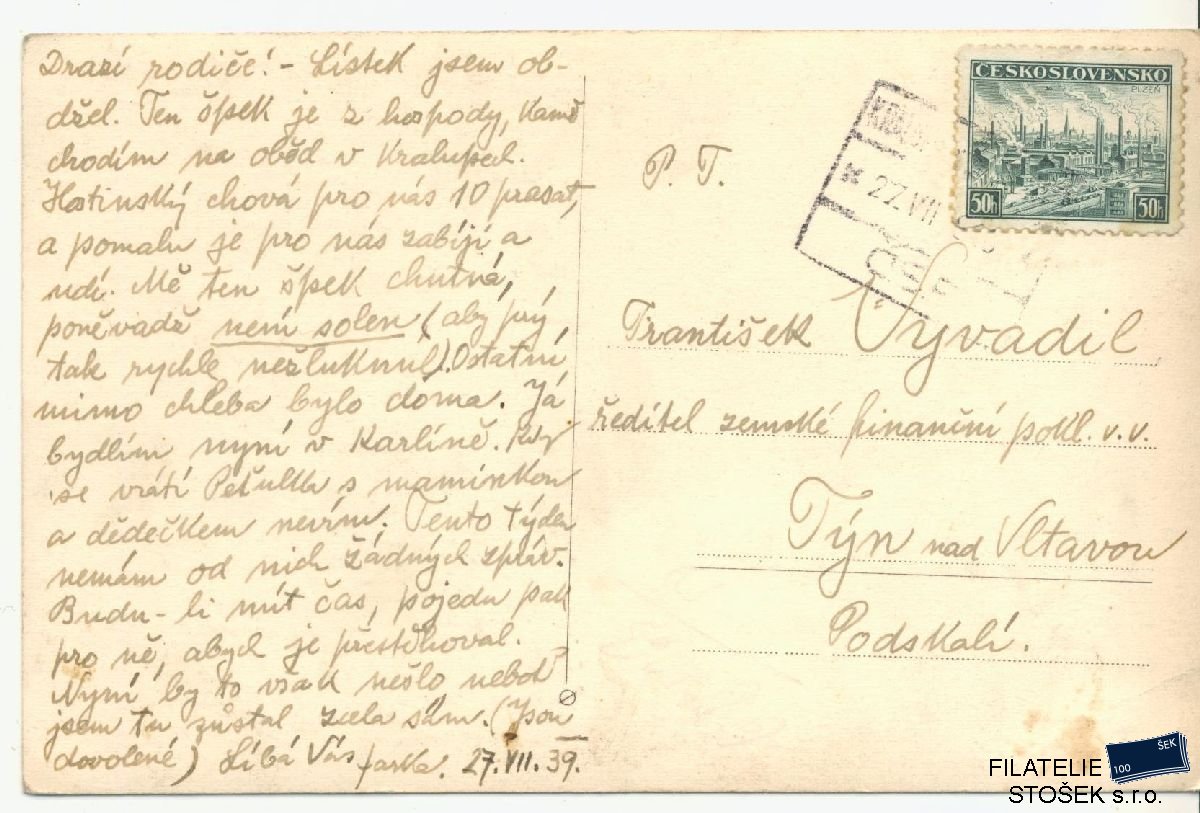 Drazí rodiče! - Lístek jsem ob-
držel. Ten špek je z hospody, kam
chodím na oběd v Kralupech.
Hostinský chová pro nás 10 prasat,
a pomalu je pro nás zabíjí a
udí. Mě ten špek chutná,
poněvadž není solen (aby prý
tak rychle nežluknul). Ostatní
mimo chleba bylo doma. Já
bydlím nyní v Karlíně. Kdy
se vrátí Petulka s maminkou
a dědečkem nevím. Tento týden
nemám od nich žádných zpráv.
Budu-li mít čas, pojedu pak
pro ně, abych je přestěhoval.
Nyní by to však nešlo, neboť
jsem tu zůstal zcela sám. (Jsou
dovolené) Líbá Vás Jarka. 27.VII.39.
P. T.
27.VII
ČESKOSLOVENSKO
PLZEŇ
50h 50h
František Vyvadil
ředitel zemské finanční pokl. v.v.
Týn nad Vltavou
Podskalí.
ŠEK
100
FILATELIE
STOŠEK s.r.o.